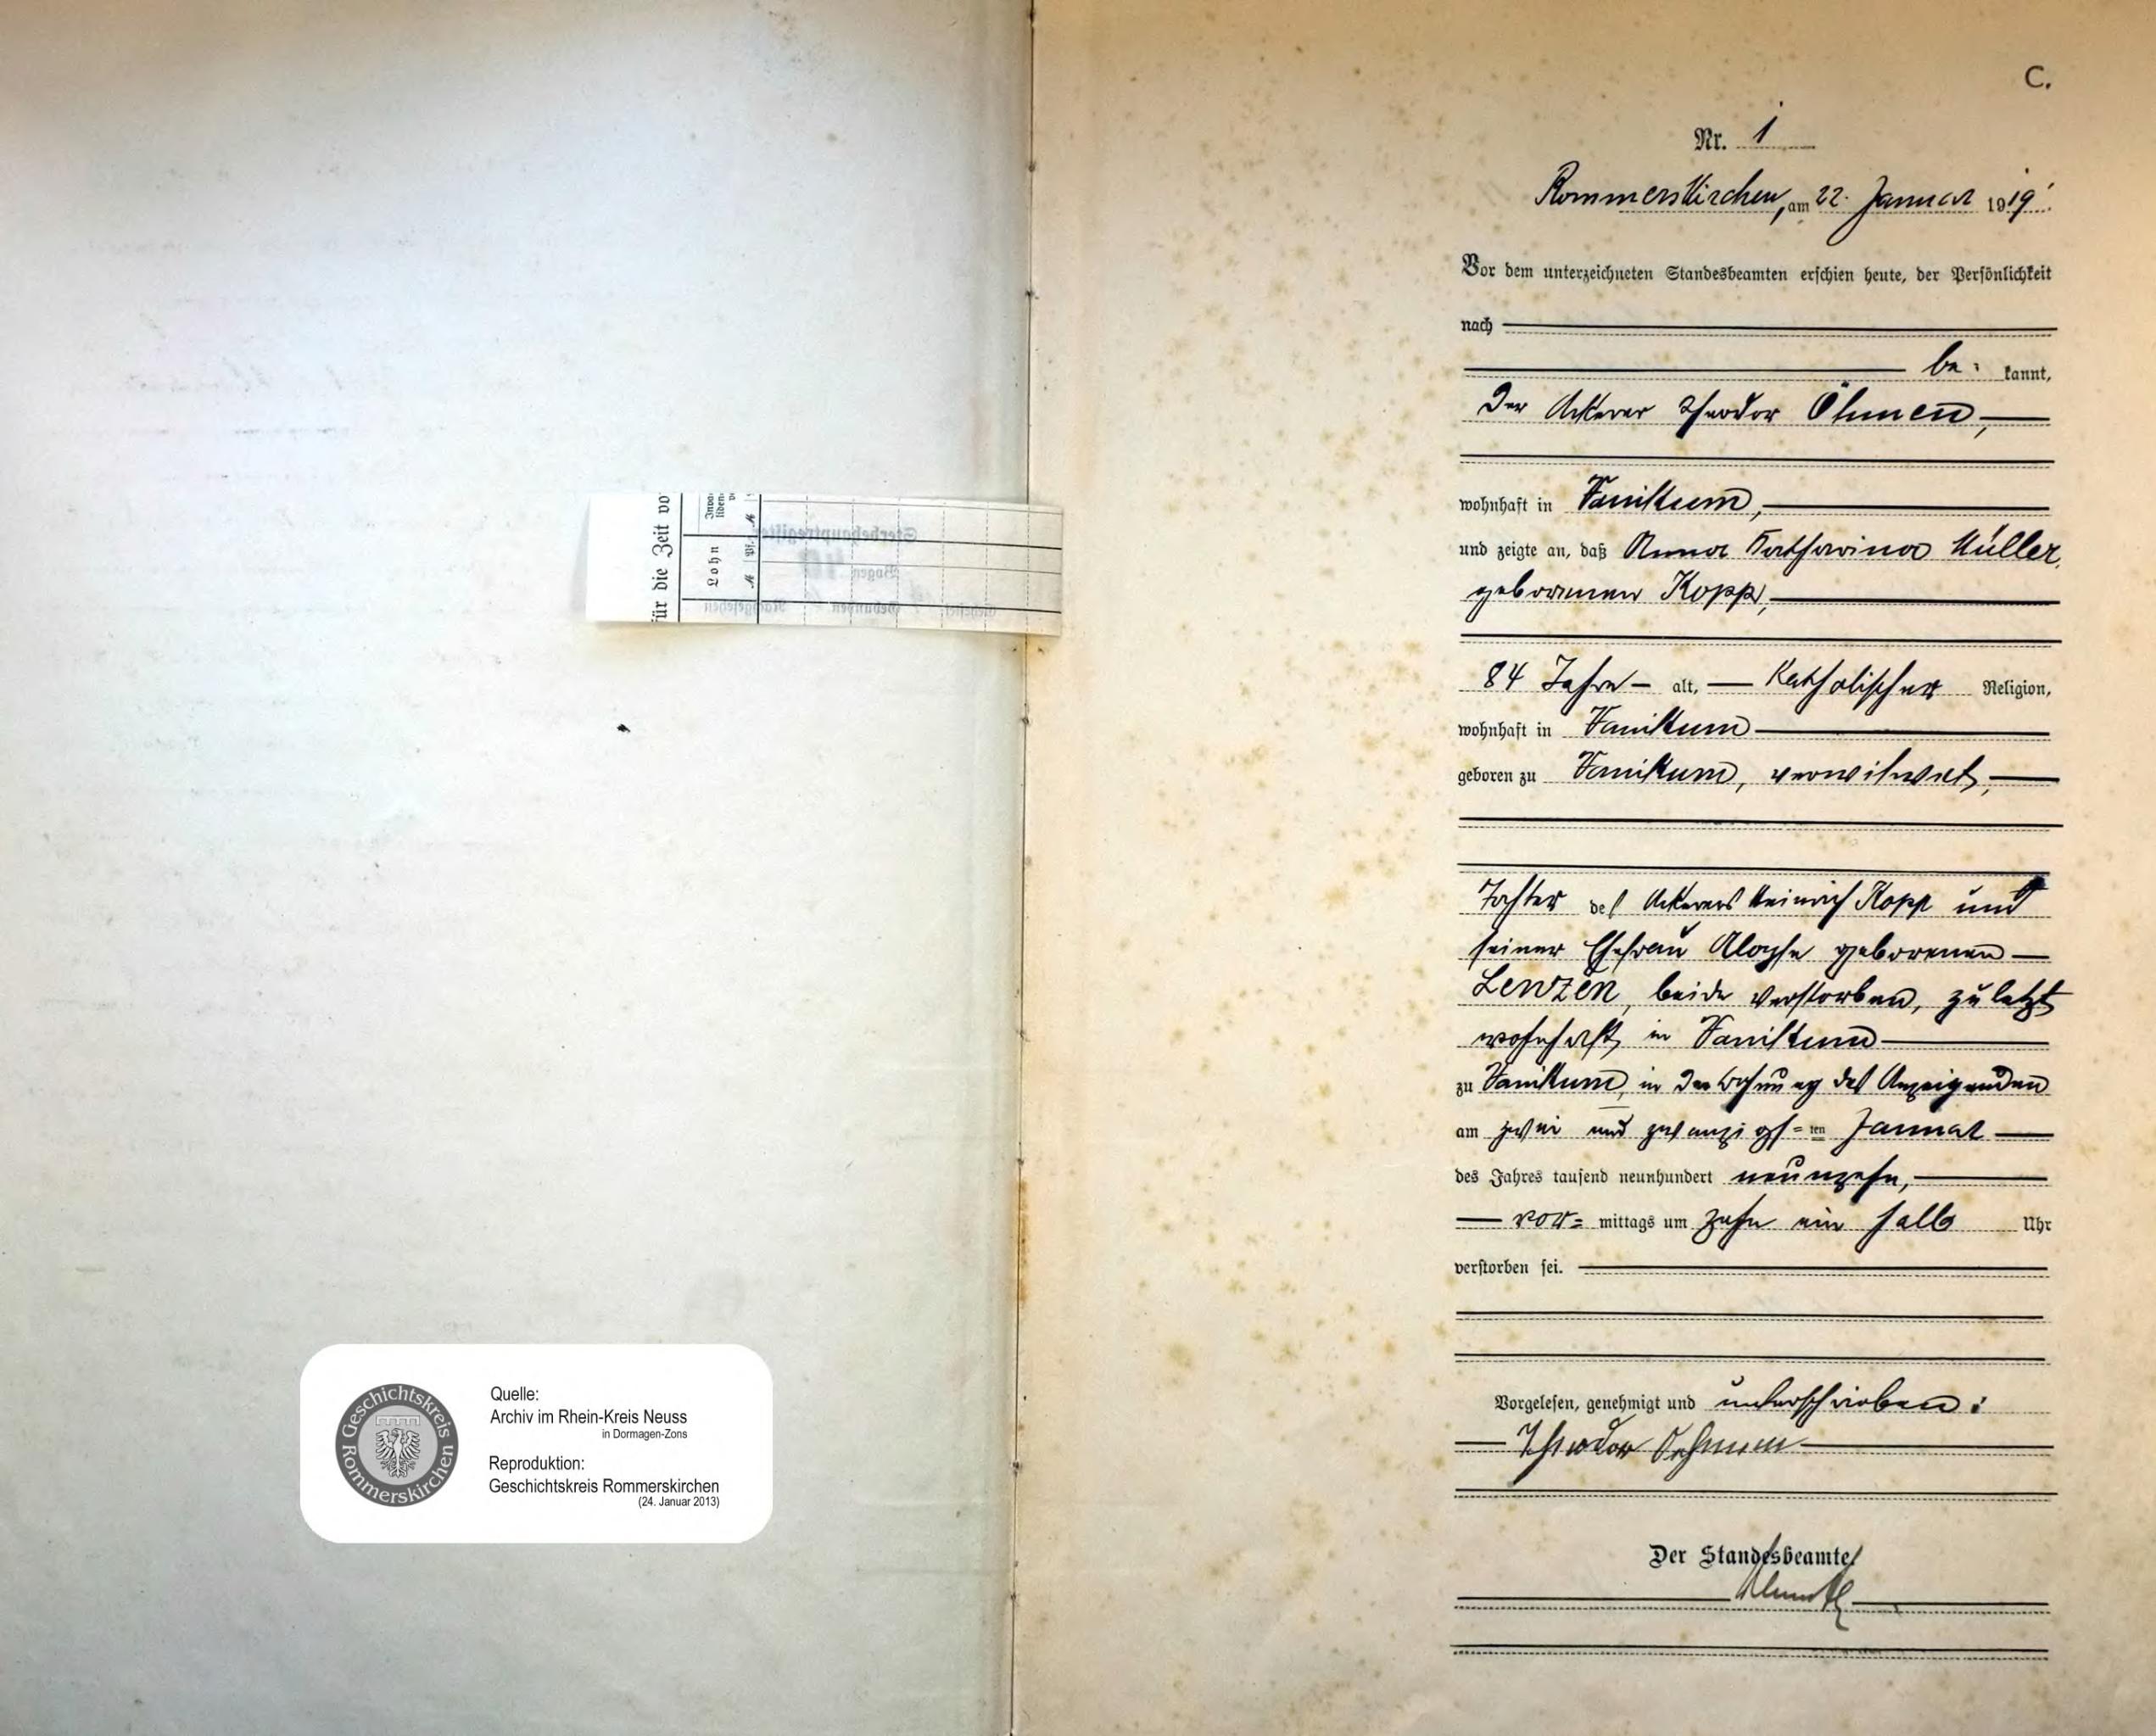 für die Zeit vo
Lohn
Inva-
liden-
M Pf. M
Sterbehauptregister
Bogen
Nachgesehen
Quelle:
Archiv im Rhein-Kreis Neuss
in Dormagen-Zons
Reproduktion:
Geschichtskreis Rommerskirchen
(24. Januar 2013)
Geschichtskreis
Rommerskirchen
C.
Nr. 1
Rommerskirchen, am 22. Januar 1919.
Vor dem unterzeichneten Standesbeamten erschien heute, der Persönlichkeit
nach
be= kannt,
Der Ackerer Theodor Öhmen,
wohnhaft in Vanikum,
und zeigte an, daß Anna Katharina Müller,
geborenen Kopp,
84 Jahre alt, Katholischer Religion,
wohnhaft in Vanikum
geboren zu Vanikum, verwitwet,
Tochter des Ackerers Heinrich Kopp und
seiner Ehefrau geborenen
Lenzen, beide verstorben, zuletzt
wohnhaft in Vanikum
zu Vanikum, in der Wohnung des Anzeigenden
am zwei und zwanzigs=ten Januar
des Jahres tausend neunhundert neunzehn,
vor= mittags um zehn ein halb Uhr
verstorben sei.
Vorgelesen, genehmigt und unterschrieben:
Theodor Oehmen
Der Standesbeamte